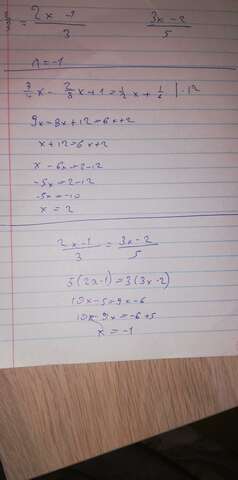 2x - 1 / 3    3x - 2 / 5
x = -1
3/4x - 2/3x + 1 = 1/2x + 1/6 | · 12
9x - 8x + 12 = 6x + 2
x + 12 = 6x + 2
x - 6x = 2 - 12
-5x = 2 - 12
-5x = -10
x = 2
2x - 1 / 3 = 3x - 2 / 5
5(2x-1) = 3(3x-2)
10x - 5 = 9x - 6
10x - 9x = -6 + 5
x = -1